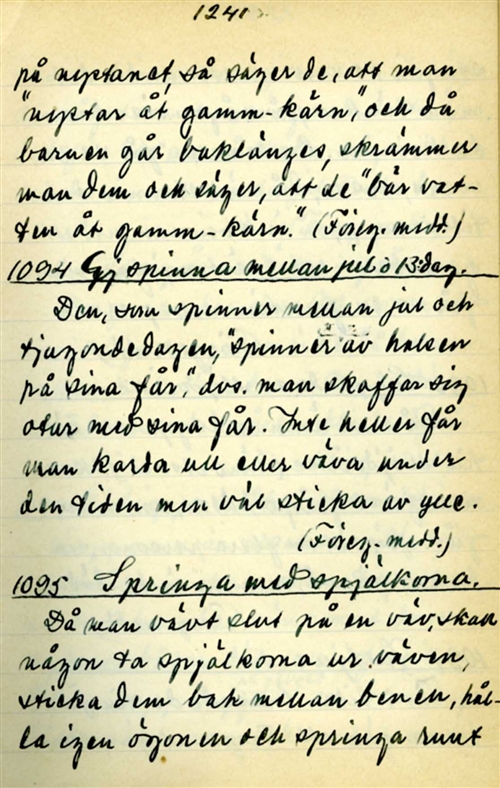 1241
på nystanet, så säger de, att man
"nystar åt gamm-kärn," och då
barnen går baklänges, skrämmer
man dem och säger, att de "bär vat-
ten åt gamm-kärn." (Föreg. medd.)
1094 Ej spinna mellan jul o 13:dag.
Den, som spinner mellan jul och
tjugondedagen, "spinner av halsen
på sina får," dvs. man skaffar sig
otur med sina får. Inte heller får
man karda ull eller väva under
den tiden men väl sticka av ylle.
(Föreg. medd.)
1095 Springa med spjälkorna.
Då man vävt slut på en väv, skall
någon ta spjälkorna ur väven,
sticka dem bak mellan benen, hål-
la igen ögonen och springa runt